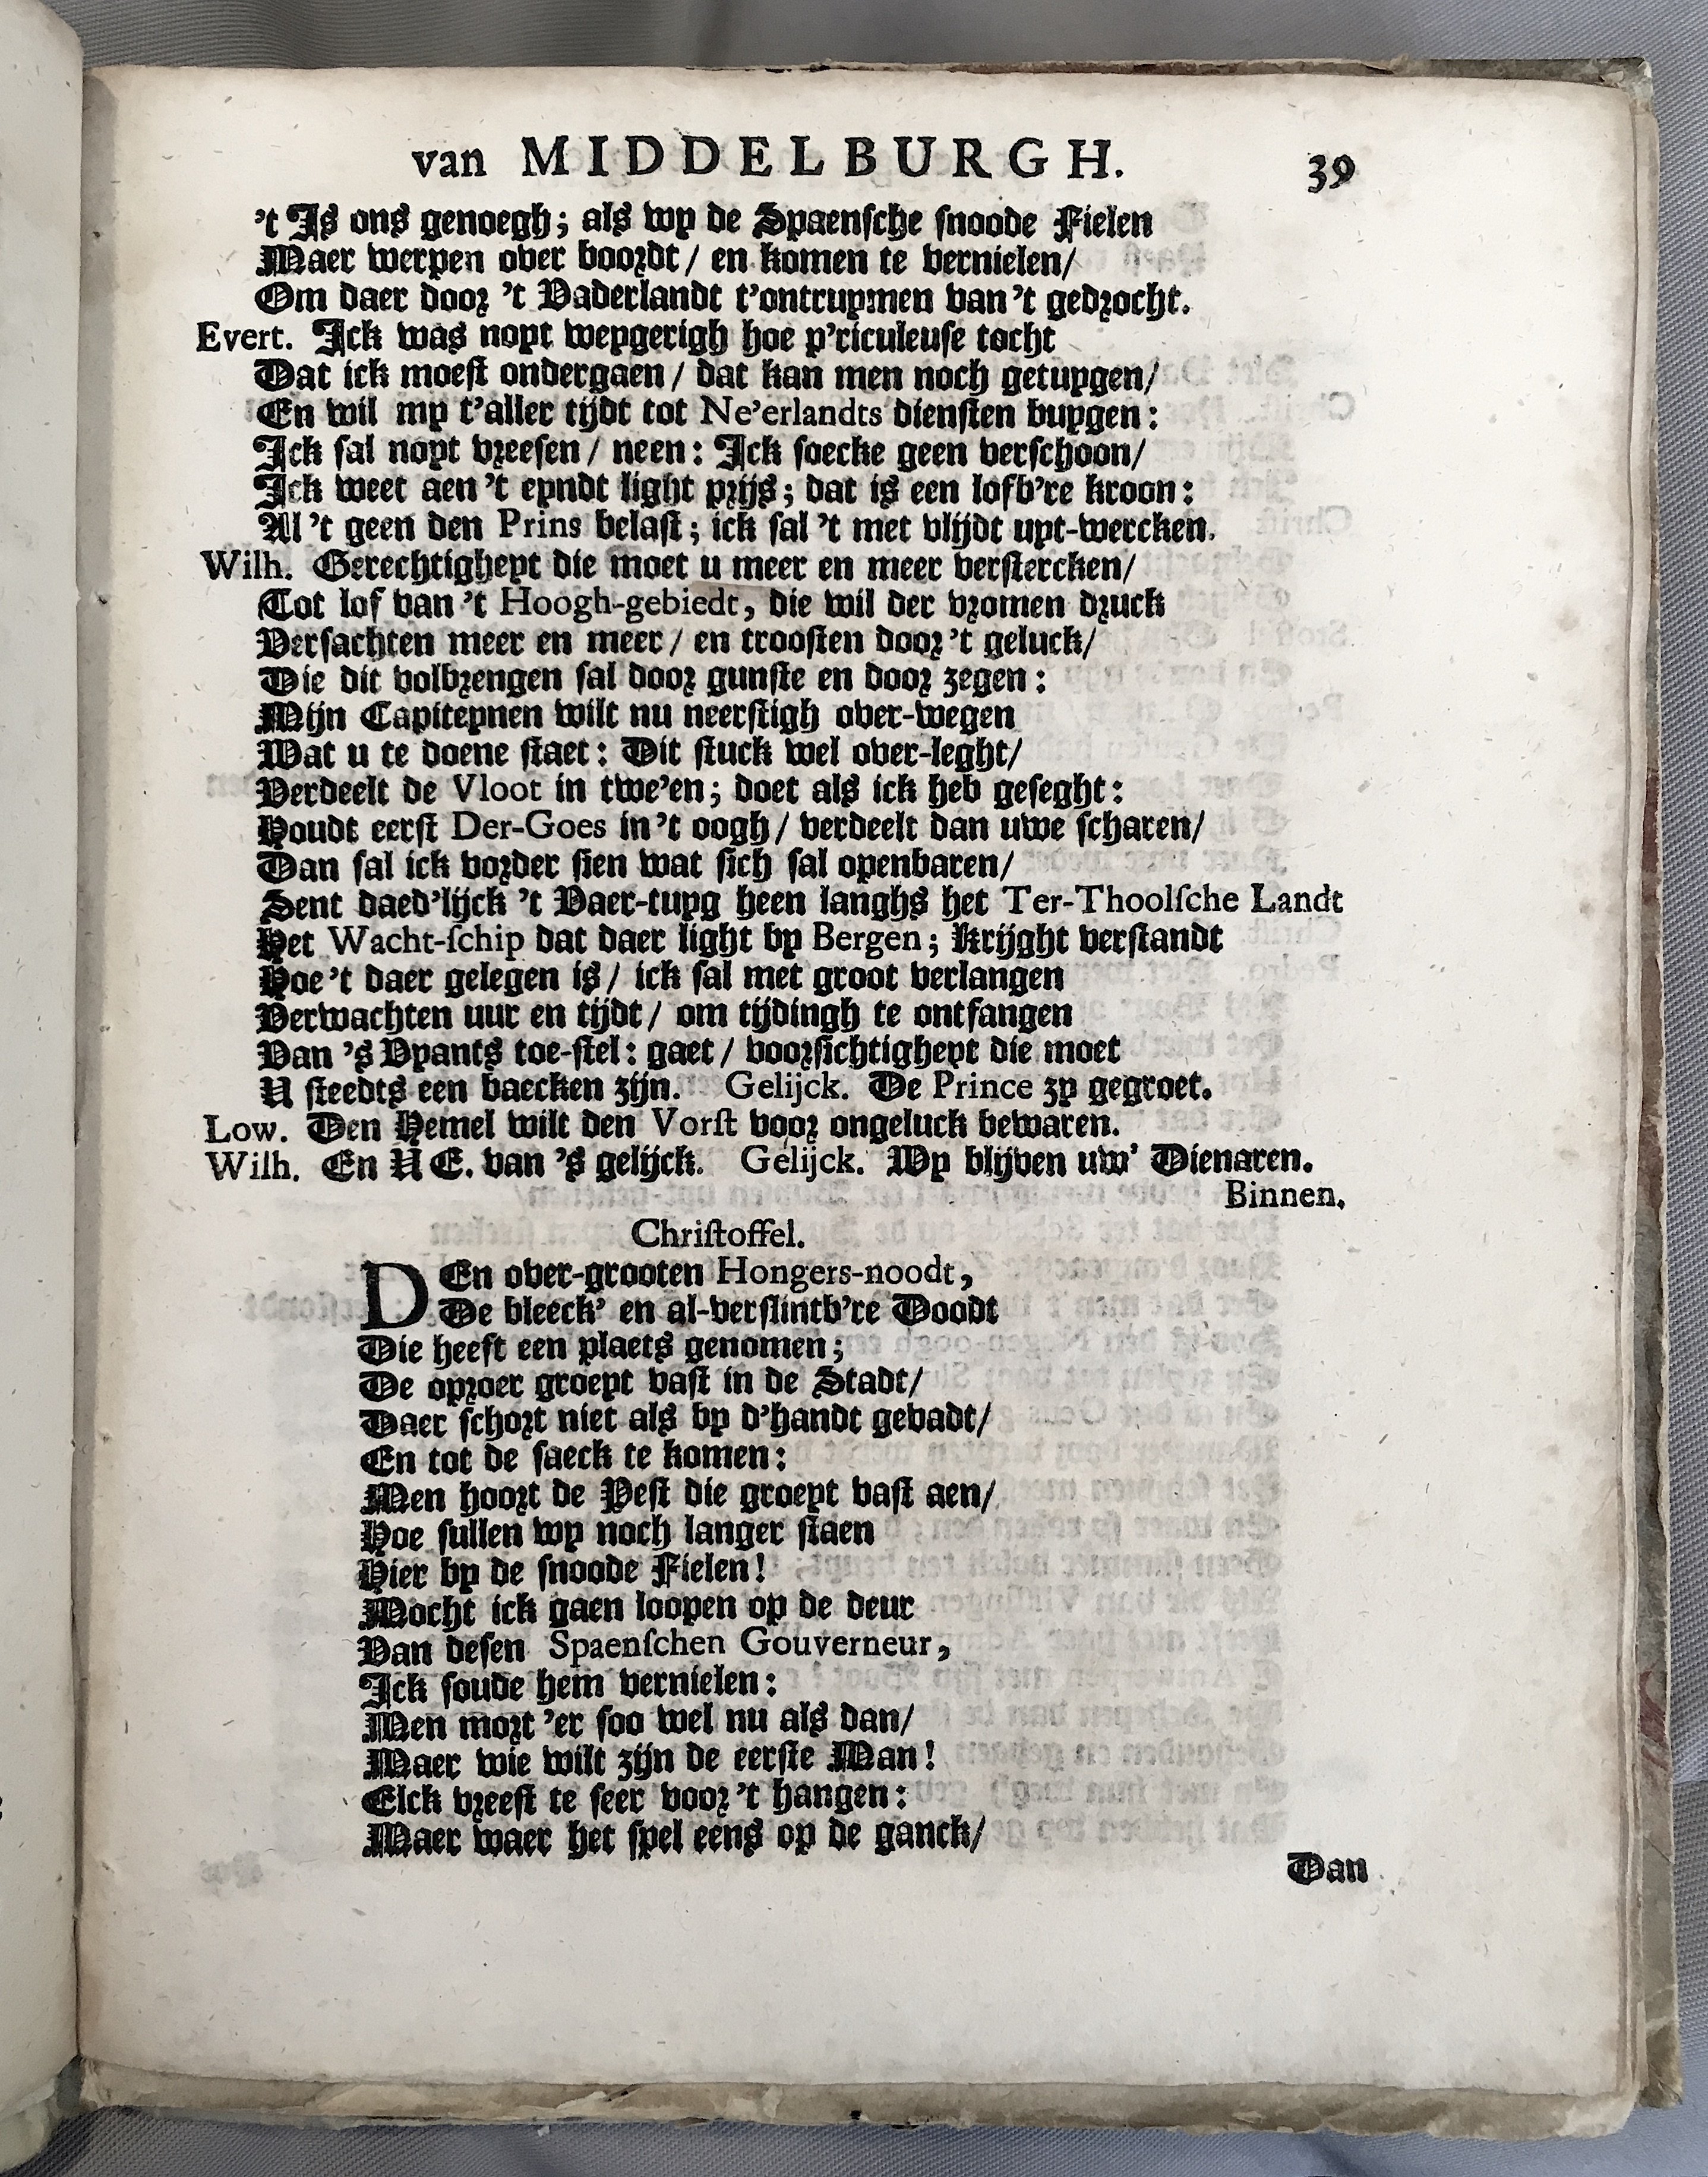 van MIDDELBURGH. 39
't Is ons genoegh; als wy de Spaensche snoode Fielen
Maer werpen over boordt/ en komen te vernielen/
Om daer door 't Vaderlandt t'ontruymen van 't gedrocht.
Evert. Ick was noyt weygerigh hoe p'riculeuse tocht
Dat ick moest ondergaen/ dat kan men noch getuygen/
En wil my t'aller tijdt tot Ne'erlandts diensten buygen:
Ick sal noyt vreesen/ neen: Ick soecke geen verschoon/
Ick weet aen 't eyndt light prijs; dat is een lofb're kroon:
Al 't geen den Prins belast; ick sal 't met vlijdt uyt-wercken.
Wilh. Gerechtigheyt die moet u meer en meer verstercken/
Tot lof van 't Hoogh-gebiedt, die wil der vromen druck
Versachten meer en meer/ en troosten door 't geluck/
Die dit volbrengen sal door gunste en door zegen:
Mijn Capiteynen wilt nu neerstigh over-wegen
Wat u te doene staet: Dit stuck wel over-leght/
Verdeelt de Vloot in twe'en; doet als ick heb geseght:
Houdt eerst Der-Goes in 't oogh/ verdeelt dan uwe scharen/
Dan sal ick vorder sien wat sich sal openbaren/
Sent daed'lijck 't Vaer-tuyg heen langhs het Ter-Thoolsche Landt
Het Wacht-schip dat daer light by Bergen; krijght verstandt
Hoe 't daer gelegen is/ ick sal met groot verlangen
Verwachten uur en tijdt/ om tijdingh te ontfangen
Van 's Vyants toe-stel: gaet/ voorsichtigheyt die moet
U steedts een baecken zijn. Gelijck. De Prince zy gegroet.
Low. Den Hemel wilt den Vorst voor ongeluck bewaren.
Wilh. En U E. van 's gelijck. Gelijck. Wy blijven uw' Dienaren.
Binnen.
Christoffel.
DEn over-grooten Hongers-noodt,
De bleeck' en al-verslintb're Doodt
Die heeft een plaets genomen;
De oproer groeyt vast in de Stadt/
Daer schort niet als by d'handt gevadt/
En tot de saeck te komen:
Men hoort de Pest die groeyt vast aen/
Hoe sullen wy noch langer staen
Hier by de snoode Fielen!
Mocht ick gaen loopen op de deur
Van desen Spaenschen Gouverneur,
Ick soude hem vernielen:
Men mort 'er soo wel nu als dan/
Maer wie wilt zijn de eerste Man!
Elck vreest te seer voor 't hangen:
Maer waer het spel eens op de ganck/
Dan